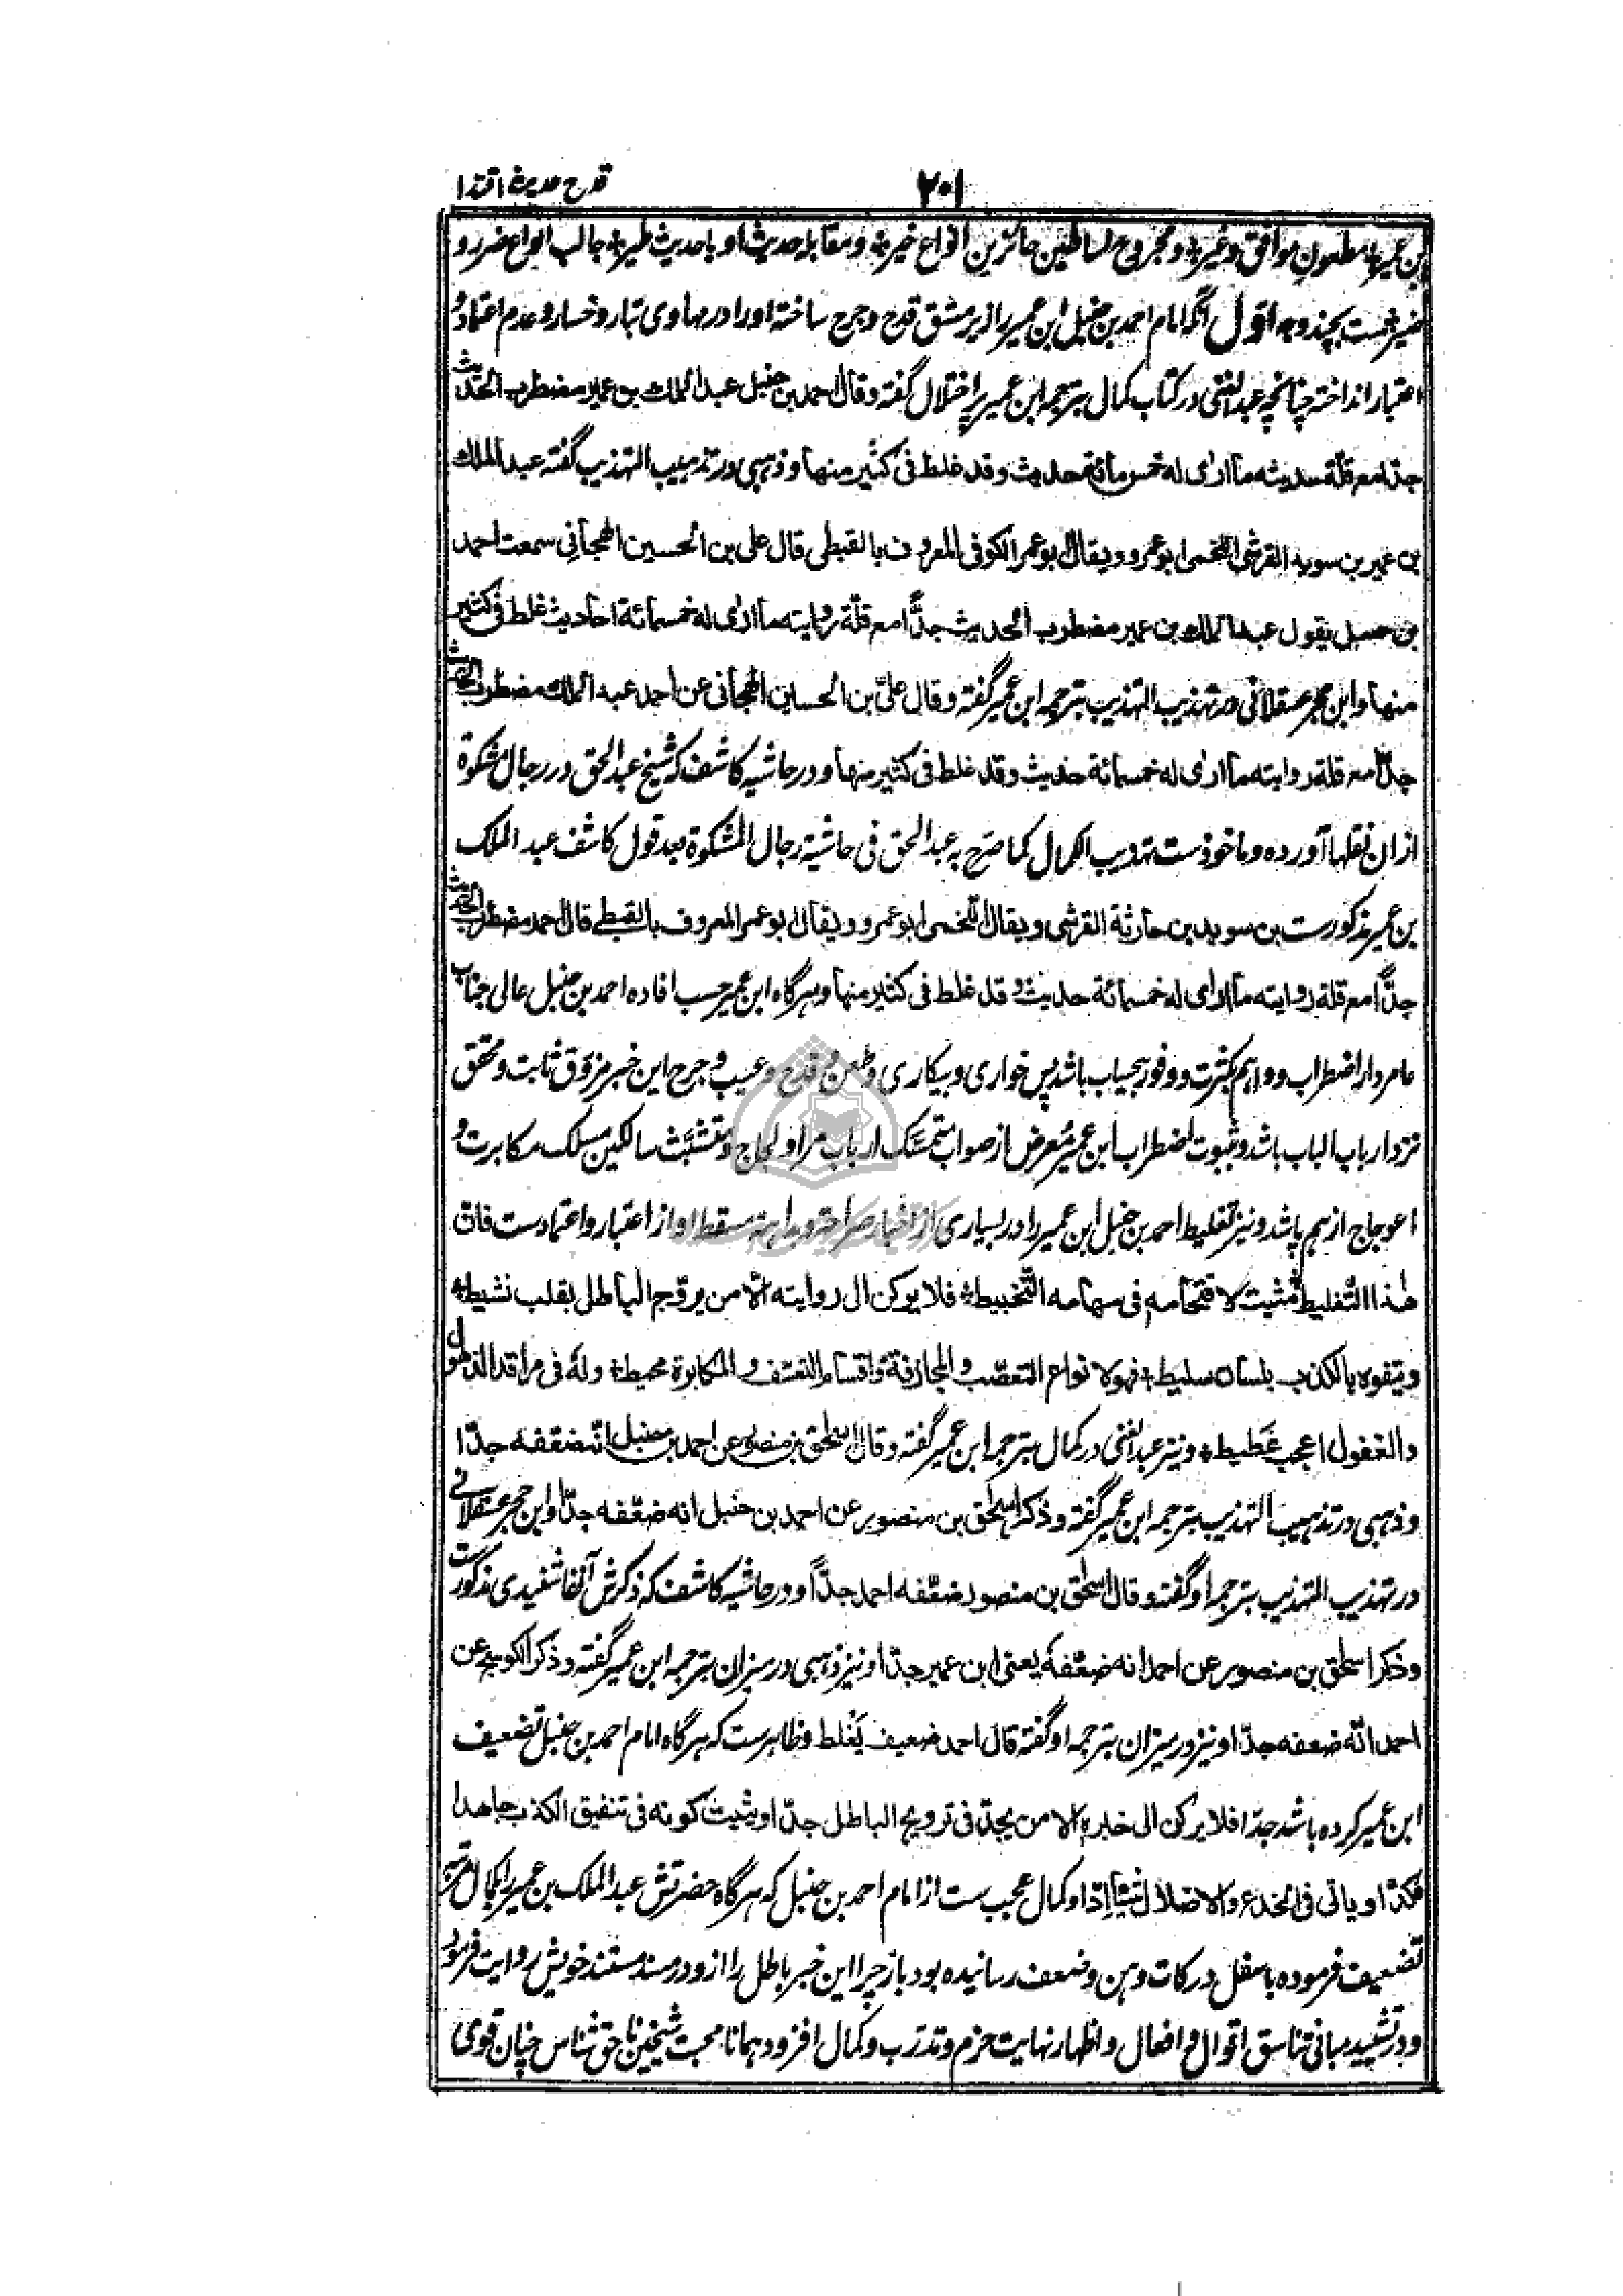 قدح حدیث اقتدا
۲۰۱
بن عمیر مطعون موافق و غیر و مجروح اساطین حائزین انواع خیر و مقابله حدیث او با حدیث طیر جالب انواع ضرر و
ضیر ست بچند وجه اول آنکه امام احمد بن حنبل ابن عمیر را زیر مشق قدح و جرح ساخته او را در مهاوی تبار و خسار و عدم اعتماد و
اعتبار انداخته چنانچه عبد الغنی در کتاب کمال بترجمه ابن عمیر پر اختلال گفته و قال احمد بن حنبل عبد الملك بن عمیر مضطرب الحدیث
جدّا مع قلّة حدیثه ما اری له خمس مائة حدیث و قد غلط فی کثیر منها و ذهبی در تذهیب التهذیب گفته عبد الملك
بن عمیر بن سوید القرشی اللخمی ابو عمرو و یقال ابو عمر الکوفی المعروف بالقبطی قال علی بن الحسین الهجانی سمعت احمد
بن حنبل یقول عبد الملك بن عمیر مضطرب الحدیث جدًّا مع قلّة روایته ما اری له خمسمائة احادیث غلط فی کثیر
منها و ابن حجر عسقلانی در تهذیب التهذیب بترجمه ابن عمیر گفته و قال علیّ بن الحسین الهجانی عن احمد عبد الملك مضطرب الحدیث
جدّا مع قلة روایته ما اری له خمسمائة حدیث و قد غلط فی کثیر منها و در حاشیه کاشف که شیخ عبد الحق در رجال مشکوة
ازان نقلها آورده و ماخوذ ست تهذیب الکمال کما صرّح به عبد الحق فی حاشیة رجال المشکوة بعد قول کاشف عبد الملک
بن عمیر مذکورست بن سوید بن حارثة القرشی و یقال اللخمی ابو عمرو و یقال ابو عمر المعروف بالقبطی قال احمد مضطرب الحدیث
جدًّا مع قلة روایته ما اری له خمسمائة حدیث و قد غلط فی کثیر منها و هرگاه ابن عمیر حسب افاده احمد بن حنبل عالی جناب
عامردار اضطراب و واهم بکثرت و وفور بیحساب باشد پس خواری و بیکاری و طعن و قدح و عیب و جرح این خبر مزوّق ثابت و محقق
نزد ارباب الباب باشد و ثبوت اضطراب ابن عمیر مُعرض از صواب متمسّک ارباب مرا و لجاج و متشبّث سالکین مسلک مکابرت و
اعوجاج از هم پاشد و نیز تغلیط احمد بن حنبل ابن عمیر را در بسیاری از اخبار صراحة و بداهة مسقط او از اعتبار و اعتمادست فان
هذا التّغلیط مثبت لاقتحامه فی مهامه التّخبیط فلا یرکن الی روایته الّا من یروّج الباطل بقلب نشیط
و یتفوه بالکذب بلسان سلیط فهو لانواع التعصّب و المجازفة و اقسام التعسّف و المکابرة محیط و له فی مراقد الذهول
و الغفول اعجب غَطیط و نیز عبد الغنی در کمال بترجمه ابن عمیر گفته و قال اسحق بن منصور عن احمد بن حنبل انّه ضعّفه جدّا
و ذهبی در تذهیب التهذیب بترجمه ابن عمیر گفته و ذکر اسحق بن منصور عن احمد بن حنبل انه ضعّفه جدّا و ابن حجر عسقلانی
در تهذیب التهذیب بترجمه او گفته و قال اسحق بن منصور ضعّفه احمد جدًّا و در حاشیه کاشف که ذکرش آنفا شنیدی مذکورست
و ذکر اسحق بن منصور عن احمد انه ضعّفه یعنی ابن عمیر جدّا و نیز ذهبی در میزان بترجمه ابن عمیر گفته و ذکر الکوسج عن
احمد انّه ضعفه جدّا و نیز در میزان بترجمه او گفته قال احمد ضعیف یَغلط و ظاهر ست که هرگاه امام احمد بن حنبل تضعیف
ابن عمیر کرده باشد جدّا فلا یرکن الی خبره الا من یجدّ فی ترویج الباطل جدّا و یثبت کونه فی تنفیق الکذب جاهدا
مکدّا و یاتی فی الخدع و الاضلال شیئا إدّا و کمال عجب ست از امام احمد بن حنبل که هرگاه حضرتش عبد الملک بن عمیر را بکمال مرتبه
تضعیف فرموده باسفل درکات وهن و ضعف رسانیده بود باز چرا این خبر باطل را از و در مسند مستند خویش روایت فرمود
و در تشیید مبانی تناسق اقوال و افعال و اظهار نهایت حزم و تدرّب و کمال افزود همانا محبت شیخین ناحق شناس چنان قوی